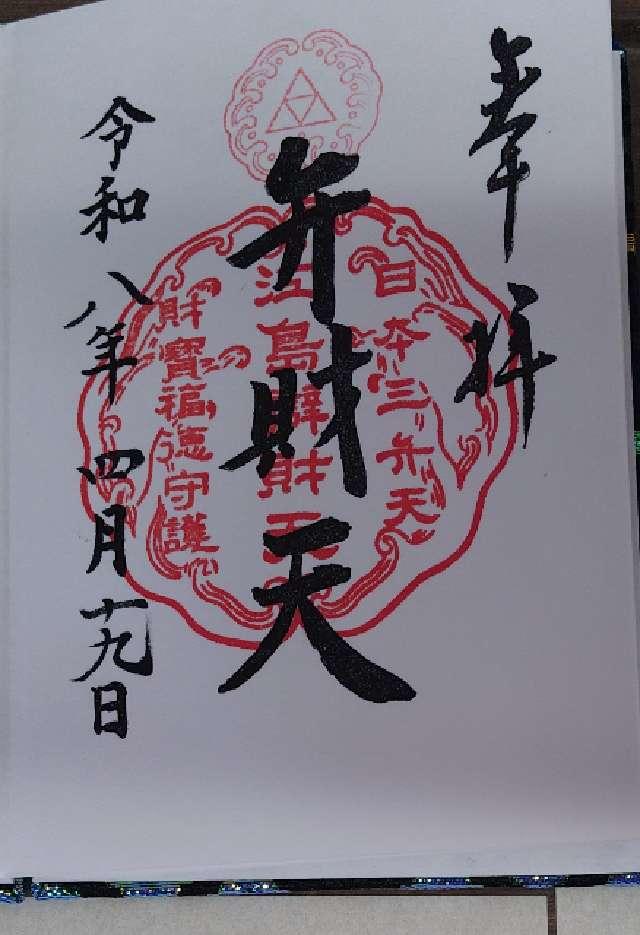 奉拝
日本三弁天
江島辯財天
財寶福徳守護
弁財天
令和八年四月十九日